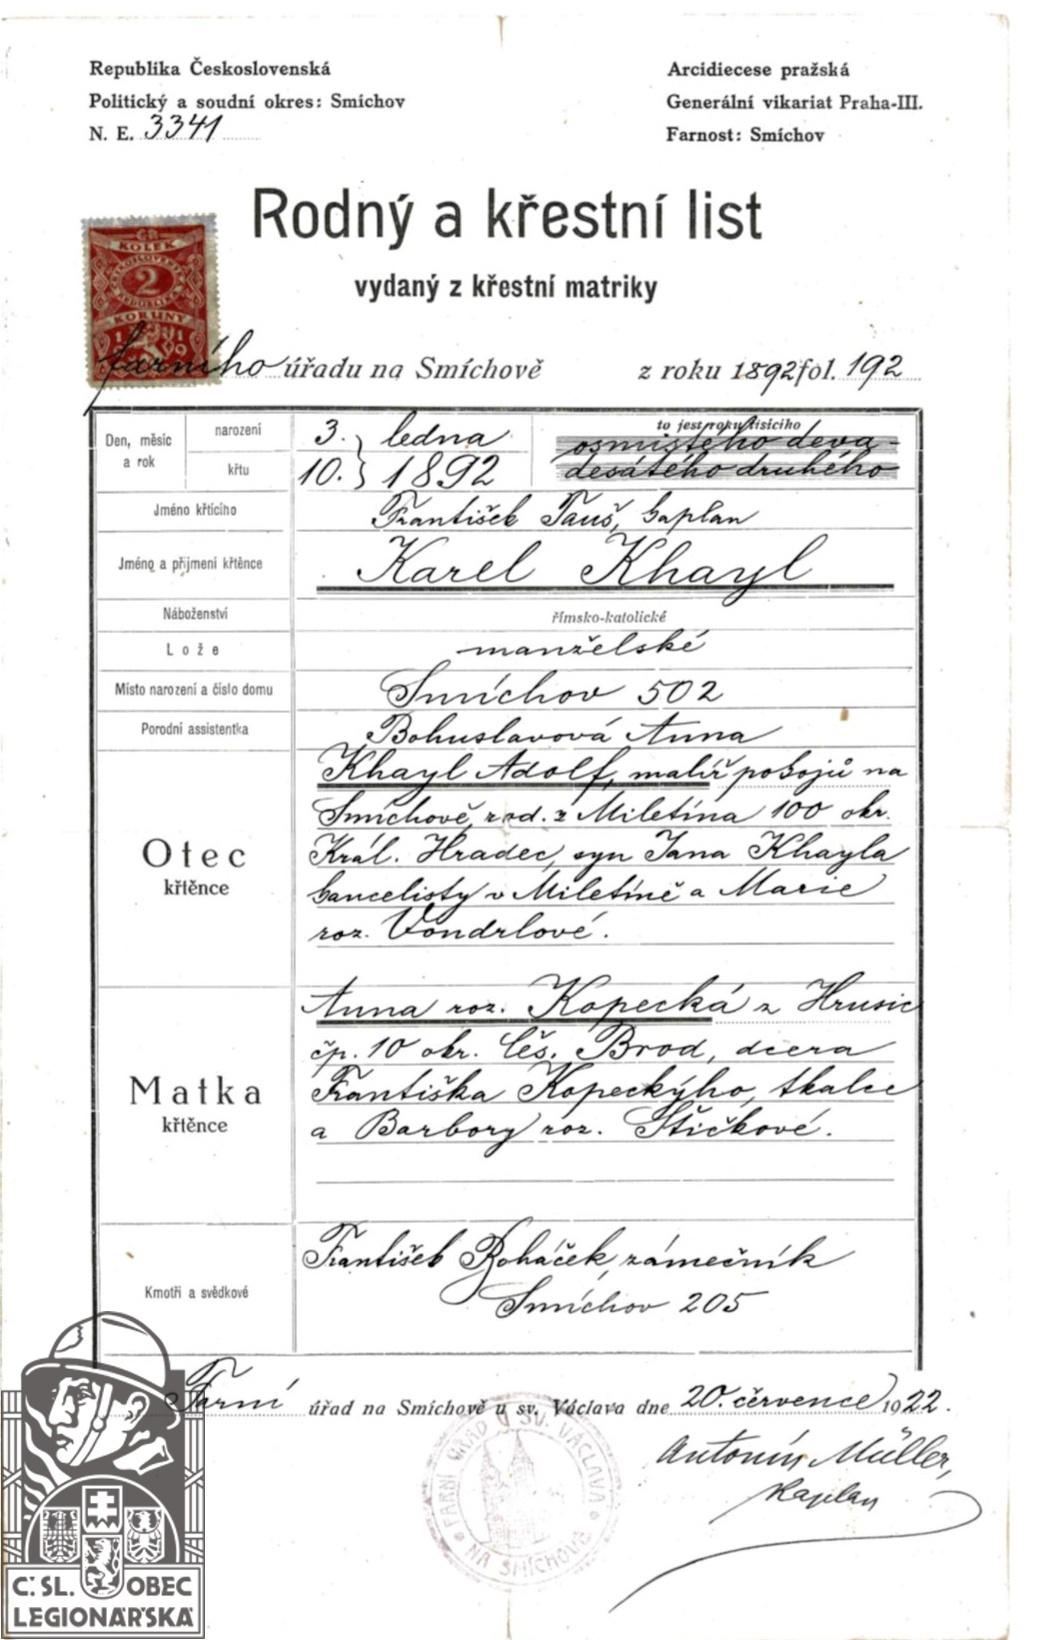 Republika Československá
Politický a soudní okres: Smíchov
N. E. 3341
Arcidiecese pražská
Generální vikariat Praha-III.
Farnost: Smíchov
Rodný a křestní list
vydaný z křestní matriky
KOLEK
2
KORUNY
1919
farního úřadu na Smíchově z roku 1892 fol. 192
Den, měsíc a rok
narození 3. ledna
křtu 10. 1892
to jest roku tisícího
osmistého deva-
desátého druhého
Jméno křtícího František Tauš, kaplan
Jméno a přijmení křtěnce Karel Khayl
Náboženství římsko-katolické
Lože manželské
Místo narození a číslo domu Smíchov 502
Porodní assistentka Bohuslavová Anna
Otec křtěnce
Khayl Adolf, malíř pokojů na
Smíchově, rod. z Miletína 100 okr.
Král. Hradec, syn Jana Khayla
kancelisty v Miletíně a Marie
roz. Vondrlové.
Matka křtěnce
Anna roz. Kopecká z Hrusic
čp. 10 okr. Češ. Brod, dcera
Františka Kopeckýho, tkalce
a Barbory roz. Štičkové.
Kmotři a svědkové
František Roháček, zámečník
Smíchov 205
Farní úřad na Smíchově u sv. Václava dne 20. července 1922.
Antonín Müller,
kaplan
FARNÍ ÚŘAD U SV. VÁCLAVA NA SMÍCHOVĚ
Č.SL. OBEC
LEGIONÁŘSKÁ